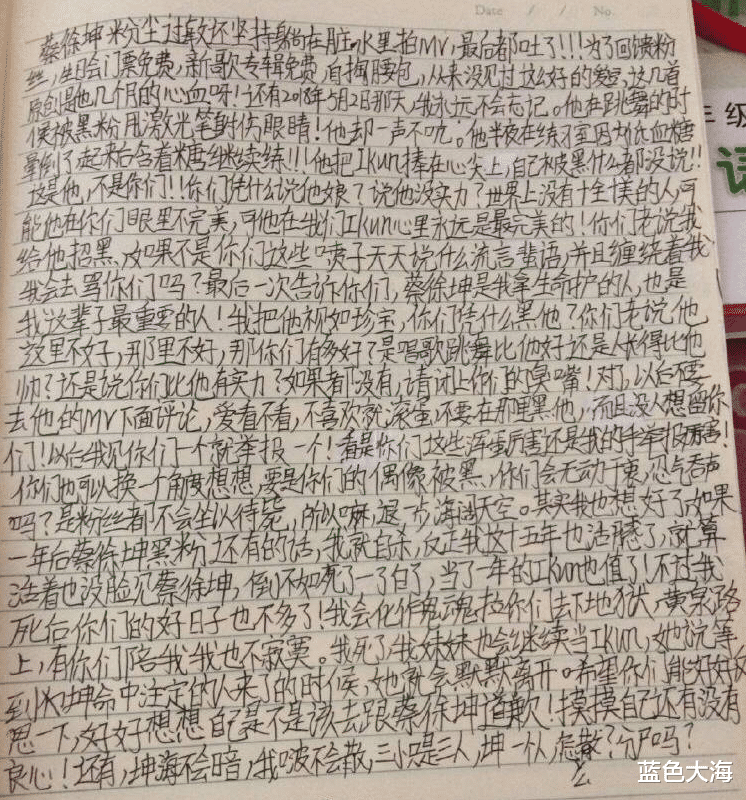 Date / / No.
蔡徐坤粉尘过敏还坚持躺在脏水里拍MV,最后都吐了!!!为了回馈粉
丝,生日会门票免费,新歌专辑免费,自掏腰包,从来没见过这么好的爱豆,这几首
原创是他几个月的心血呀!还有2018年5月2日那天,我永远不会忘记。他在跳舞的时
候被黑粉用激光笔射伤眼睛!他却一声不吭。他半夜在练习室因为低血糖
晕倒了起来后含着糖继续练!!!他把IKun捧在心尖上,自己被黑什么都没说!!
这是他,不是你们!!你们凭什么说他娘?说他没实力?世界上没有十全十美的人,可
能他在你们眼里不完美,可他在我们IKun心里永远是最完美的!你们老说我
给他招黑,如果不是你们这些喷子天天说什么流言蜚语,并且缠绕着我
我会去骂你们吗?最后一次告诉你们,蔡徐坤是我拿生命护的人,也是
我这辈子最重要的人!我把他视如珍宝,你们凭什么黑他?你们老说他
这里不好,那里不好,那你们有多好?是唱歌跳舞比他好还是人长得比他
帅?还是说你们比他有实力?如果都没有,请闭上你们的臭嘴!对了,以后不要
去他的MV下面评论,爱看不看,不喜欢就滚蛋,不要在那里黑他,而且没人想留你
们!以后我见你们一个就举报一个!看是你们这些浑蛋厉害还是我的手举报厉害!
你们也可以换一个角度想想,要是你们的偶像被黑,你们会无动于衷,忍气吞声
吗?是粉丝都不会坐以待毙,所以嘛,退一步海阔天空。其实我也想好了,如果
一年后蔡徐坤黑粉还有的话,我就自杀,反正我这十五年也活腻了,就算
活着也没脸见蔡徐坤,倒不如死了一了百了,当了一年的IKun也值了!不过我
死后你们的好日子也不多了!我会化作鬼魂拉你们去下地狱,黄泉路
上,有你们陪我我也不寂寞。我死了我妹妹也会继续当IKun,她说等
到蔡坤命中注定的人来了的时候,她就会默默离开。希望你们能好好反
思一下,好好想想自己是不是该去跟蔡徐坤道歉!摸摸自己还有没有
良心!还有,坤海不会暗,我啵不会散,三小只是三人,坤一个人,怎么散?分尸吗?
年级
蓝色大海